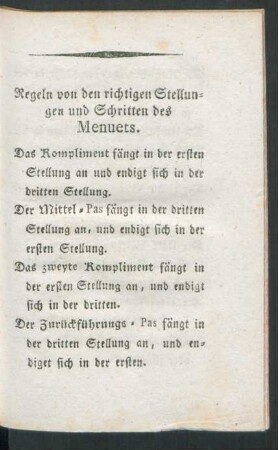 Regeln von den richtigen Stellun-
gen und Schritten des
Menuets.
Das Kompliment fängt in der ersten
Stellung an und endigt sich in der
dritten Stellung.
Der Mittel-Pas fängt in der dritten
Stellung an, und endigt sich in der
ersten Stellung.
Das zweyte Kompliment fängt in
der ersten Stellung an, und endigt
sich in der dritten.
Der Zurückführungs-Pas fängt in
der dritten Stellung an, und en-
diget sich in der ersten.